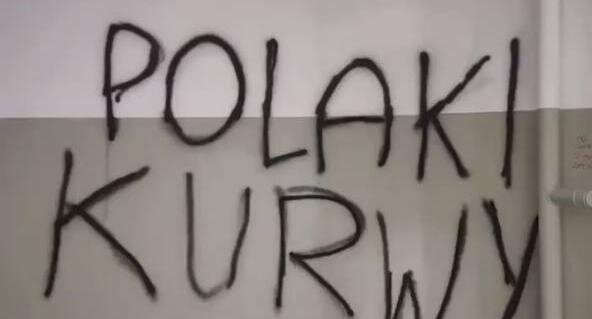 POLAKI
KURWY